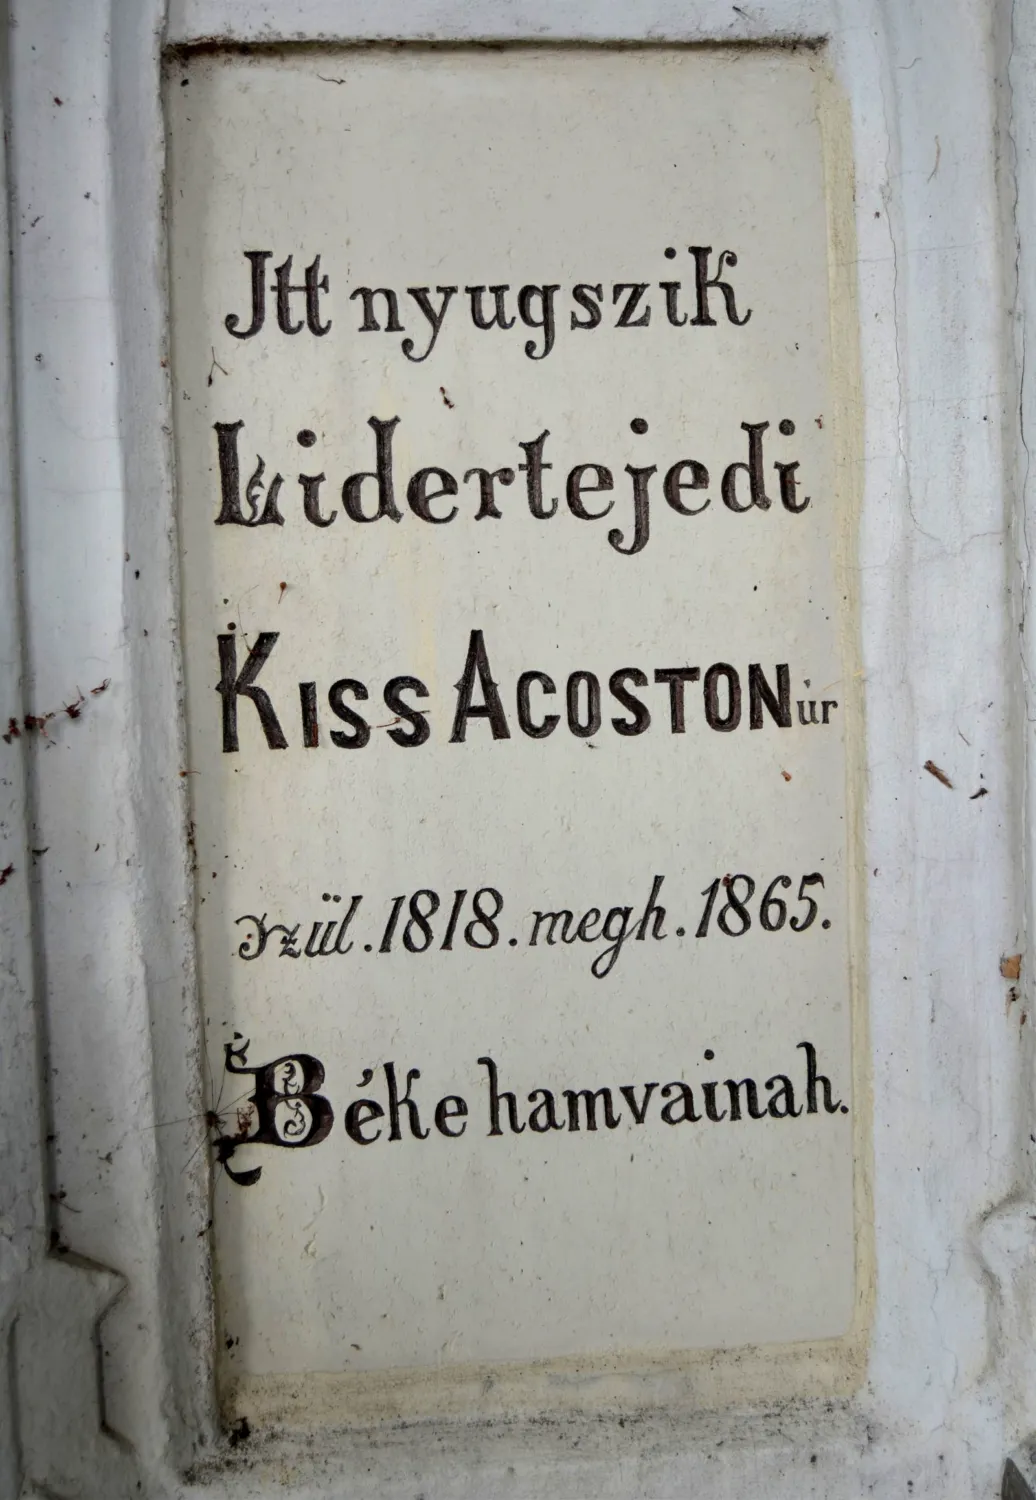 Itt nyugszik
Lidertejedi
KISS ACOSTON úr
szül. 1818. megh. 1865.
Béke hamvainah.